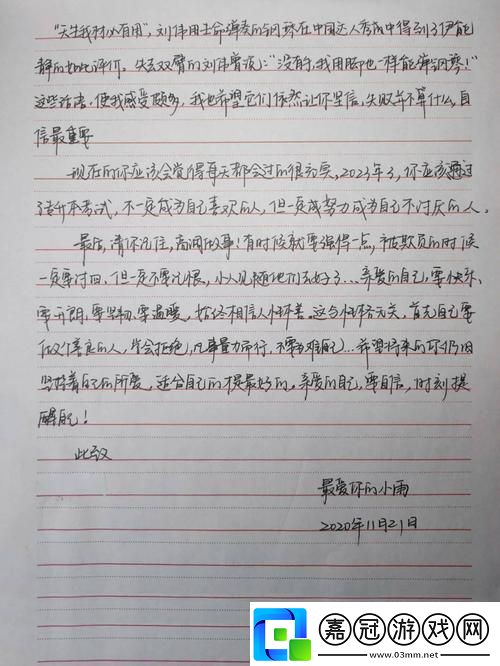 "天生我材必有用",刘伟用生命弹奏的钢琴在中国达人秀中得到了伊能
静的如此评价。失去双臂的刘伟曾说:"没有手,我用脚也一样能弹钢琴!"
这些话语,使我感受颇多,我也希望它们依然让你坚信,失败并不算什么,自
信最重要
现在的你应该会觉得每天都会过的很充实,2023年了,你应该通过
专升本考试,不一定成为自己喜欢的人,但一定成努力成为自己不讨厌的人。
最后,请你记住,高调做事!有时候就要强得一点,被欺负的时候
一定要讨回,但一定不要记恨,小人见随他们去好了…亲爱的自己,要快乐、
要开朗、要坚韧、要温暖,始终相信人性本善。这与性格无关,首先自己要
做个善良的人,学会拒绝,凡事量力而行,不要为难自己…希望将来的你仍旧
坚持着自己的所爱,适合自己的才是最好的。亲爱的自己,要自信,时刻提
醒自己!
此致
最爱你的小雨
2020年11月21日
嘉冠游戏网
www.03mm.net